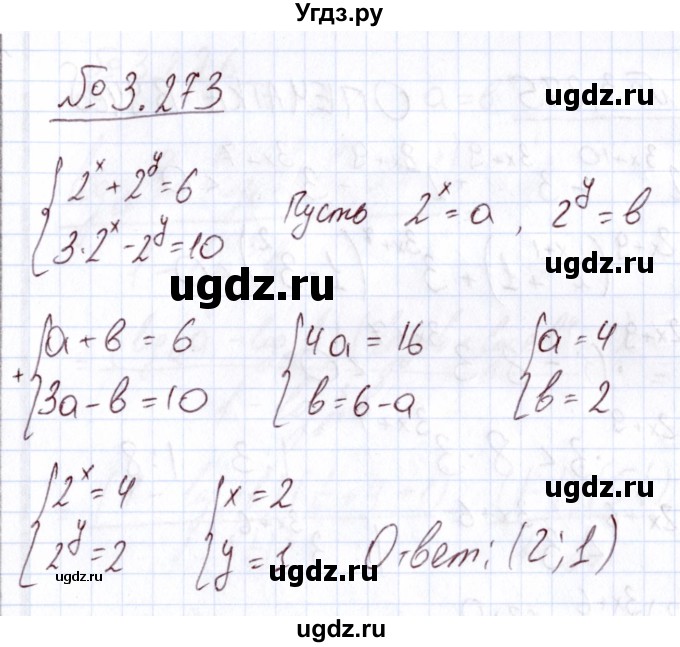 Угдз.ру
№ 3.273
ugdz.ru
{ 2^x + 2^y = 6
{ 3·2^x - 2^y = 10
Пусть 2^x = a, 2^y = b
ugdz.ru
ugdz.ru
+ { a + b = 6
{ 3a - b = 10
{ 4a = 16
{ b = 6 - a
{ a = 4
{ b = 2
ugdz.ru
ugdz.ru
{ 2^x = 4
{ 2^y = 2
{ x = 2
{ y = 1
Ответ: (2; 1)
ugdz.ru
ugdz.ru
ugdz.ru